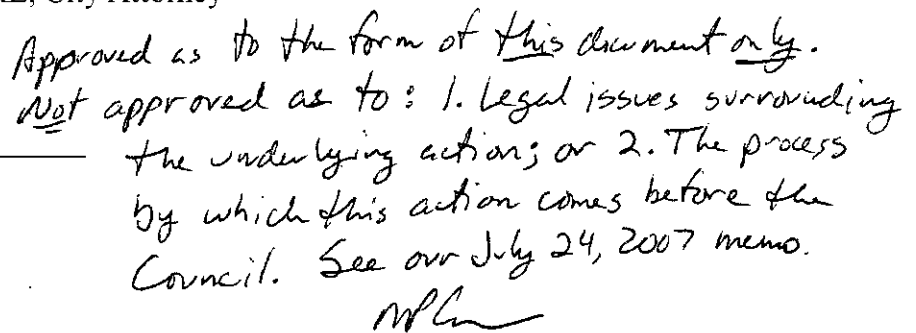 City Attorney
Approved as to the form of this document only.
Not approved as to: 1. Legal issues surrounding
the underlying action; or 2. The process
by which this action comes before the
Council. See our July 24, 2007 memo.